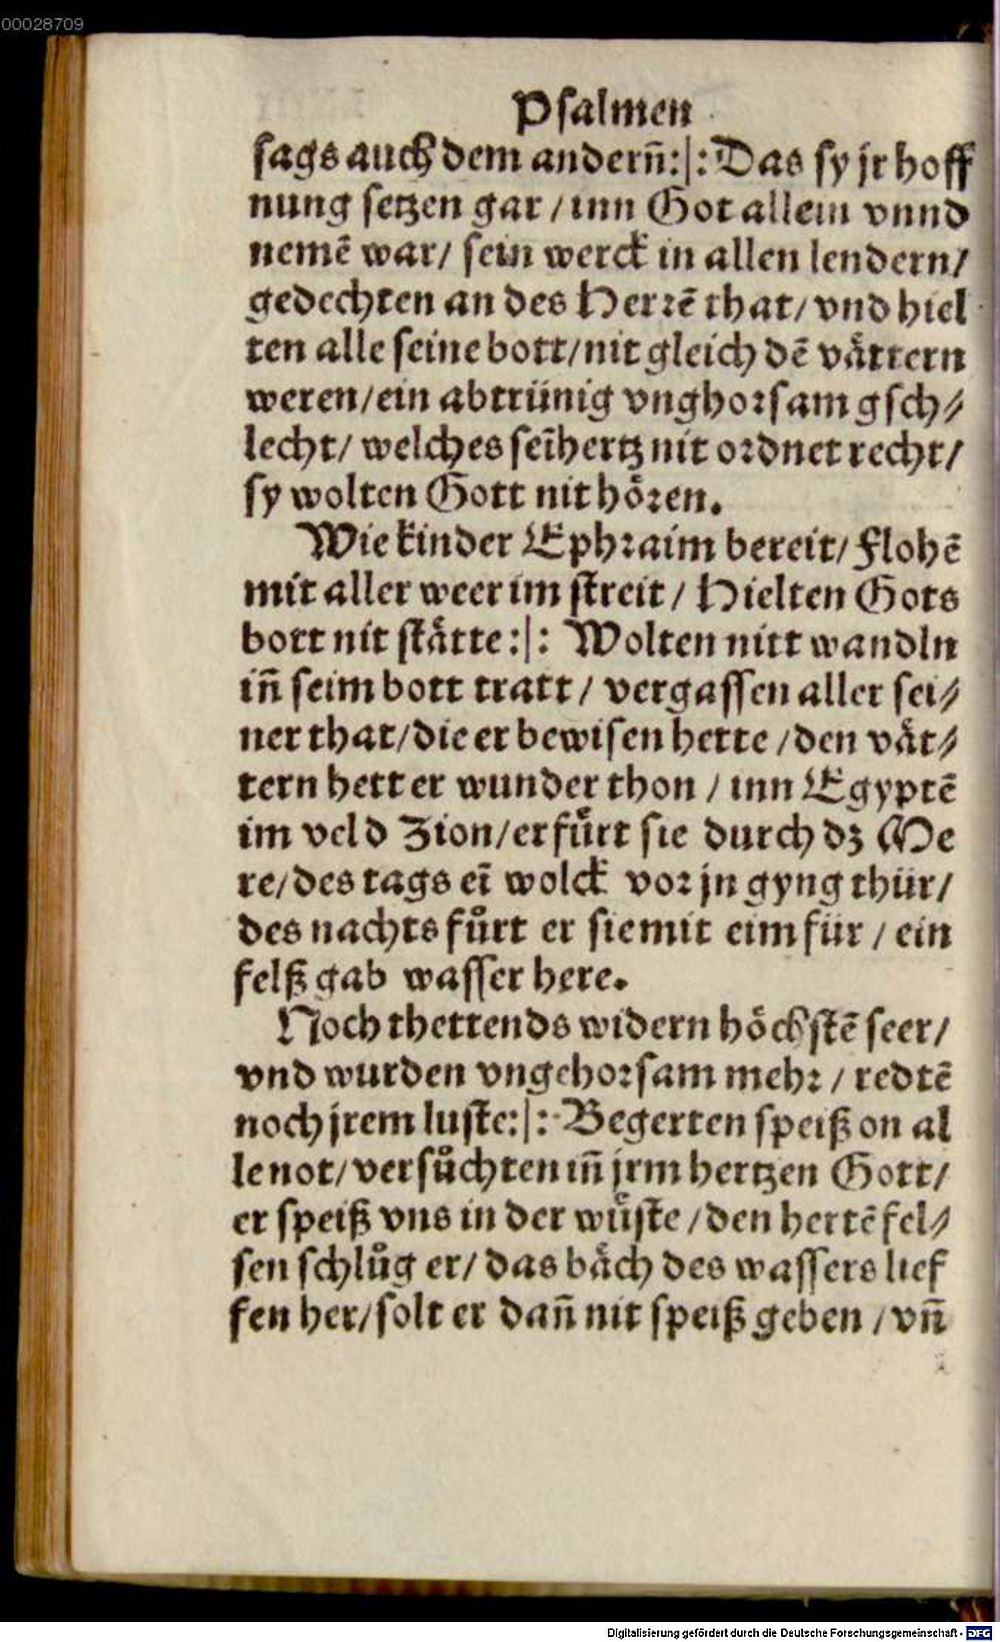 00028709
Psalmen
sags auch dem andern̄:|: Das sy jr hoff
nung setzen gar / inn Got allein vnnd
nemē war / sein werck in allen lendern /
gedechten an des Herrē that / vnd hiel
ten alle seine bott / nit gleich dē våttern
weren / ein abtrünig vnghorsam gsch⸗
lecht / welches seī hertz nit ordnet recht /
sy wolten Gott nit hôren.
Wie kinder Ephraim bereit / Flohē
mit aller weer im streit / Hielten Gots
bott nit ståtte :|: Wolten nitt wandln
in̄ seim bott tratt / vergassen aller sei⸗
ner that / die er bewisen hette / den våt⸗
tern hett er wunder thon / inn Egyptē
im veld Zion / er fůrt sie durch dz Me
re / des tags eī wolck vor jn gyng thür /
des nachts fůrt er sie mit eim für / ein
felß gab wasser here.
Noch thettends widern höchstē seer /
vnd wurden vngehorsam mehr / redtē
noch jrem luste :|: Begerten speiß on al
le not / versůchten in̄ jrm hertzen Gott /
er speiß vns in der wůste / den hertē fel⸗
sen schlůg er / das båch des wassers lief
fen her / solt er dan̄ nit speiß geben / vn̄
Digitalisierung gefördert durch die Deutsche Forschungsgemeinschaft - DFG